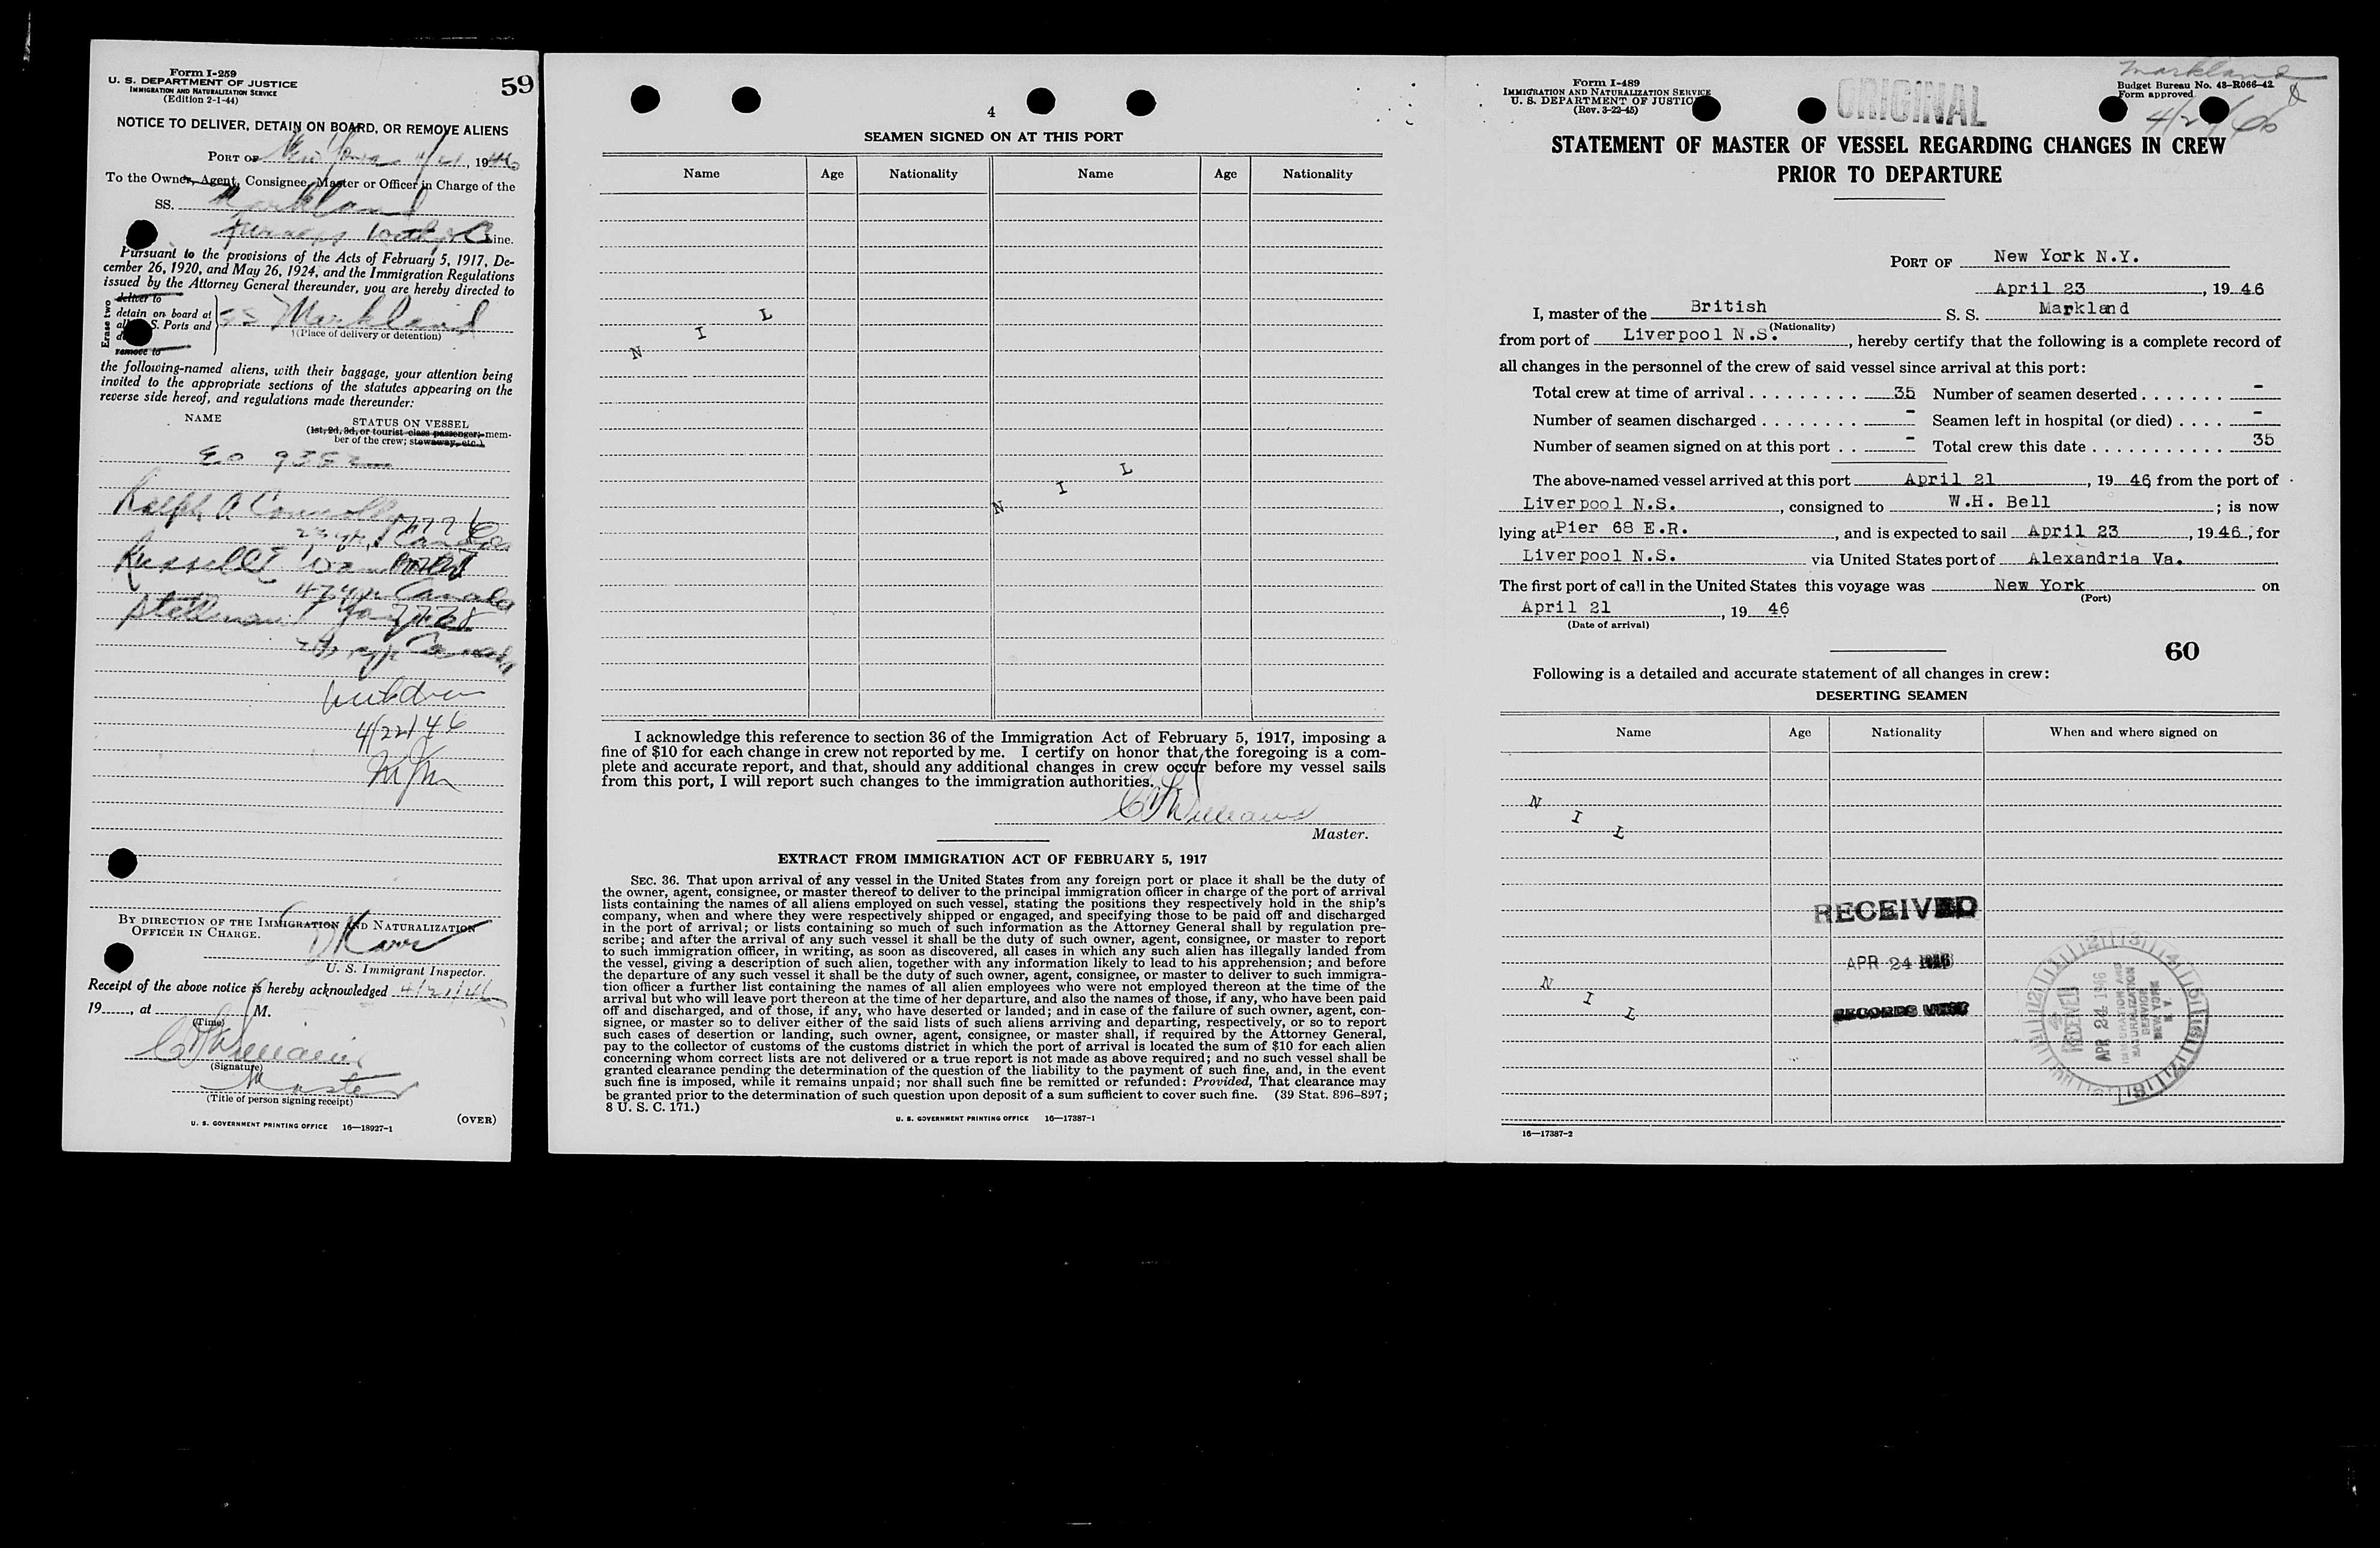 Form I-259
U. S. DEPARTMENT OF JUSTICE
IMMIGRATION AND NATURALIZATION SERVICE
(Edition 2-1-44)
59
NOTICE TO DELIVER, DETAIN ON BOARD, OR REMOVE ALIENS
PORT OF New York 4/21, 1946
To the Owner, Agent, Consignee, Master or Officer in Charge of the
SS. Markland
Furness Line.
Pursuant to the provisions of the Acts of February 5, 1917, De-
cember 26, 1920, and May 26, 1924, and the Immigration Regulations
issued by the Attorney General thereunder, you are hereby directed to
Erase two
deliver to
detain on board at
S. Ports and
remove to
SS Markland
(Place of delivery or detention)
the following-named aliens, with their baggage, your attention being
invited to the appropriate sections of the statutes appearing on the
reverse side hereof, and regulations made thereunder:
NAME
STATUS ON VESSEL
(1st, 2d, 3d, or tourist class passenger; mem-
ber of the crew; stowaway, etc.)
Ralph A Connolly
Russell
Canada
4/22/46
BY DIRECTION OF THE IMMIGRATION AND NATURALIZATION
OFFICER IN CHARGE.
U. S. Immigrant Inspector.
Receipt of the above notice is hereby acknowledged 4/21/46
19, at M.
(Time)
(Signature)
Master
(Title of person signing receipt)
(OVER)
U. S. GOVERNMENT PRINTING OFFICE 16—18927-1
4
SEAMEN SIGNED ON AT THIS PORT
Name Age Nationality Name Age Nationality
N I L
N I L
I acknowledge this reference to section 36 of the Immigration Act of February 5, 1917, imposing a
fine of $10 for each change in crew not reported by me. I certify on honor that the foregoing is a com-
plete and accurate report, and that, should any additional changes in crew occur before my vessel sails
from this port, I will report such changes to the immigration authorities.
Williams
Master.
EXTRACT FROM IMMIGRATION ACT OF FEBRUARY 5, 1917
SEC. 36. That upon arrival of any vessel in the United States from any foreign port or place it shall be the duty of
the owner, agent, consignee, or master thereof to deliver to the principal immigration officer in charge of the port of arrival
lists containing the names of all aliens employed on such vessel, stating the positions they respectively hold in the ship's
company, when and where they were respectively shipped or engaged, and specifying those to be paid off and discharged
in the port of arrival; or lists containing so much of such information as the Attorney General shall by regulation pre-
scribe; and after the arrival of any such vessel it shall be the duty of such owner, agent, consignee, or master to report
to such immigration officer, in writing, as soon as discovered, all cases in which any such alien has illegally landed from
the vessel, giving a description of such alien, together with any information likely to lead to his apprehension; and before
the departure of any such vessel it shall be the duty of such owner, agent, consignee, or master to deliver to such immigra-
tion officer a further list containing the names of all alien employees who were not employed thereon at the time of the
arrival but who will leave port thereon at the time of her departure, and also the names of those, if any, who have been paid
off and discharged, and of those, if any, who have deserted or landed; and in case of the failure of such owner, agent, con-
signee, or master so to deliver either of the said lists of such aliens arriving and departing, respectively, or so to report
such cases of desertion or landing, such owner, agent, consignee, or master shall, if required by the Attorney General,
pay to the collector of customs of the customs district in which the port of arrival is located the sum of $10 for each alien
concerning whom correct lists are not delivered or a true report is not made as above required; and no such vessel shall be
granted clearance pending the determination of the question of the liability to the payment of such fine, and, in the event
such fine is imposed, while it remains unpaid; nor shall such fine be remitted or refunded: Provided, That clearance may
be granted prior to the determination of such question upon deposit of a sum sufficient to cover such fine. (39 Stat. 896-897;
8 U. S. C. 171.)
U. S. GOVERNMENT PRINTING OFFICE 16—17387-1
Form I-489
IMMIGRATION AND NATURALIZATION SERVICE
U. S. DEPARTMENT OF JUSTICE
(Rev. 3-22-45)
ORIGINAL
Markland
Budget Bureau No. 43-R066-42
Form approved
STATEMENT OF MASTER OF VESSEL REGARDING CHANGES IN CREW
PRIOR TO DEPARTURE
PORT OF New York N.Y.
April 23, 19 46
I, master of the British S. S. Markland
(Nationality)
from port of Liverpool N.S., hereby certify that the following is a complete record of
all changes in the personnel of the crew of said vessel since arrival at this port:
Total crew at time of arrival 35 Number of seamen deserted -
Number of seamen discharged - Seamen left in hospital (or died) -
Number of seamen signed on at this port - Total crew this date 35
The above-named vessel arrived at this port April 21, 19 46, from the port of
Liverpool N.S., consigned to W.H. Bell; is now
lying at Pier 68 E.R., and is expected to sail April 23, 19 46, for
Liverpool N.S. via United States port of Alexandria Va.
The first port of call in the United States this voyage was New York on
(Port)
April 21, 19 46
(Date of arrival)
60
Following is a detailed and accurate statement of all changes in crew:
DESERTING SEAMEN
Name Age Nationality When and where signed on
N I L
RECEIVED
APR 24 1946
N I L
RECORDS
RECEIVED
APR 24 1946
IMMIGRATION AND
NATURALIZATION
SERVICE
NEW YORK
N. Y.
16—17387-2